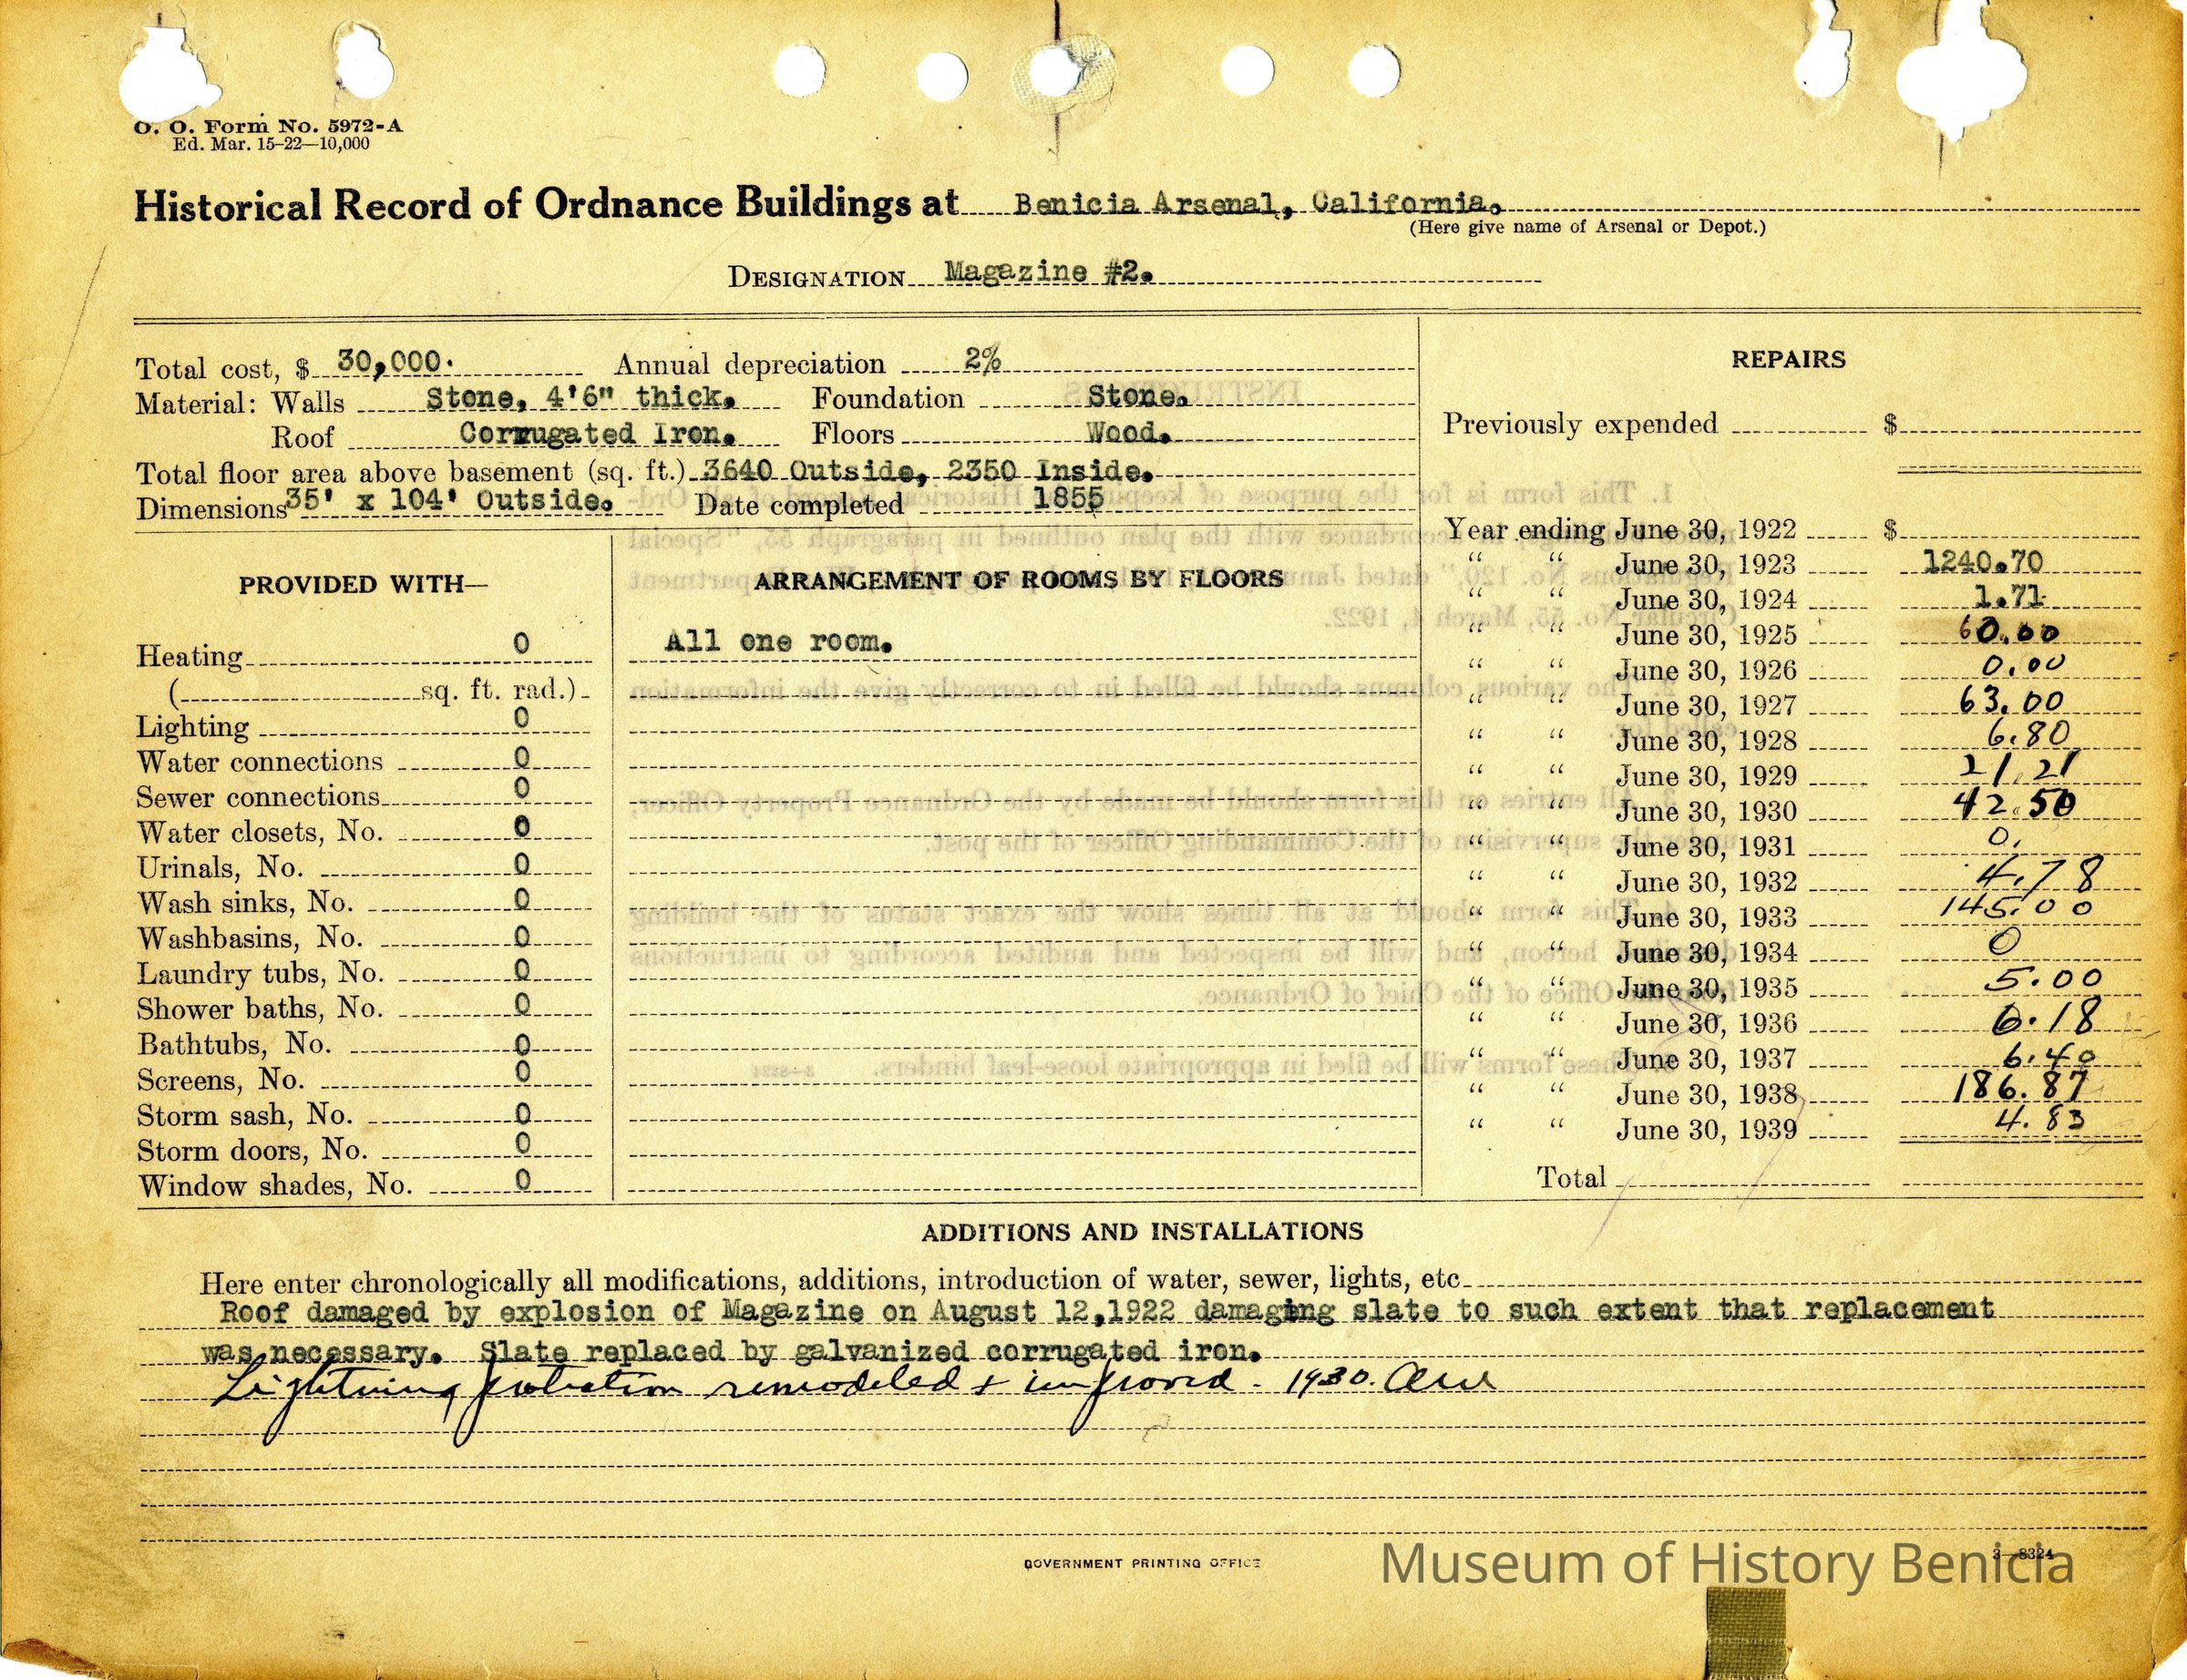 O. O. Form No. 5972-A
Ed. Mar. 15-22—10,000
Historical Record of Ordnance Buildings at Benicia Arsenal, California.
(Here give name of Arsenal or Depot.)
DESIGNATION Magazine #2.
Total cost, $ 30,000. Annual depreciation 2%
Material: Walls Stone, 4'6" thick. Foundation Stone.
Roof Corrugated Iron. Floors Wood.
Total floor area above basement (sq. ft.) 3640 Outside, 2350 Inside.
Dimensions 35' x 104' Outside. Date completed 1855
PROVIDED WITH—
Heating 0
( sq. ft. rad.)
Lighting 0
Water connections 0
Sewer connections 0
Water closets, No. 0
Urinals, No. 0
Wash sinks, No. 0
Washbasins, No. 0
Laundry tubs, No. 0
Shower baths, No. 0
Bathtubs, No. 0
Screens, No. 0
Storm sash, No. 0
Storm doors, No. 0
Window shades, No. 0
ARRANGEMENT OF ROOMS BY FLOORS
All one room.
REPAIRS
Previously expended $
Year ending June 30, 1922 $
" " June 30, 1923 1240.70
" " June 30, 1924 1.71
" " June 30, 1925 60.00
" " June 30, 1926 0.00
" " June 30, 1927 63.00
" " June 30, 1928 6.80
" " June 30, 1929 21.21
" " June 30, 1930 42.50
" " June 30, 1931 0.
" " June 30, 1932 4.78
" " June 30, 1933 145.00
" " June 30, 1934 0
" " June 30, 1935 5.00
" " June 30, 1936 6.18
" " June 30, 1937 6.40
" " June 30, 1938 186.87
" " June 30, 1939 4.83
Total
ADDITIONS AND INSTALLATIONS
Here enter chronologically all modifications, additions, introduction of water, sewer, lights, etc
Roof damaged by explosion of Magazine on August 12,1922 damaging slate to such extent that replacement
was necessary. Slate replaced by galvanized corrugated iron.
Lightning protection remodeled + improved - 1930.
GOVERNMENT PRINTING OFFICE
3—8324
Museum of History Benicia